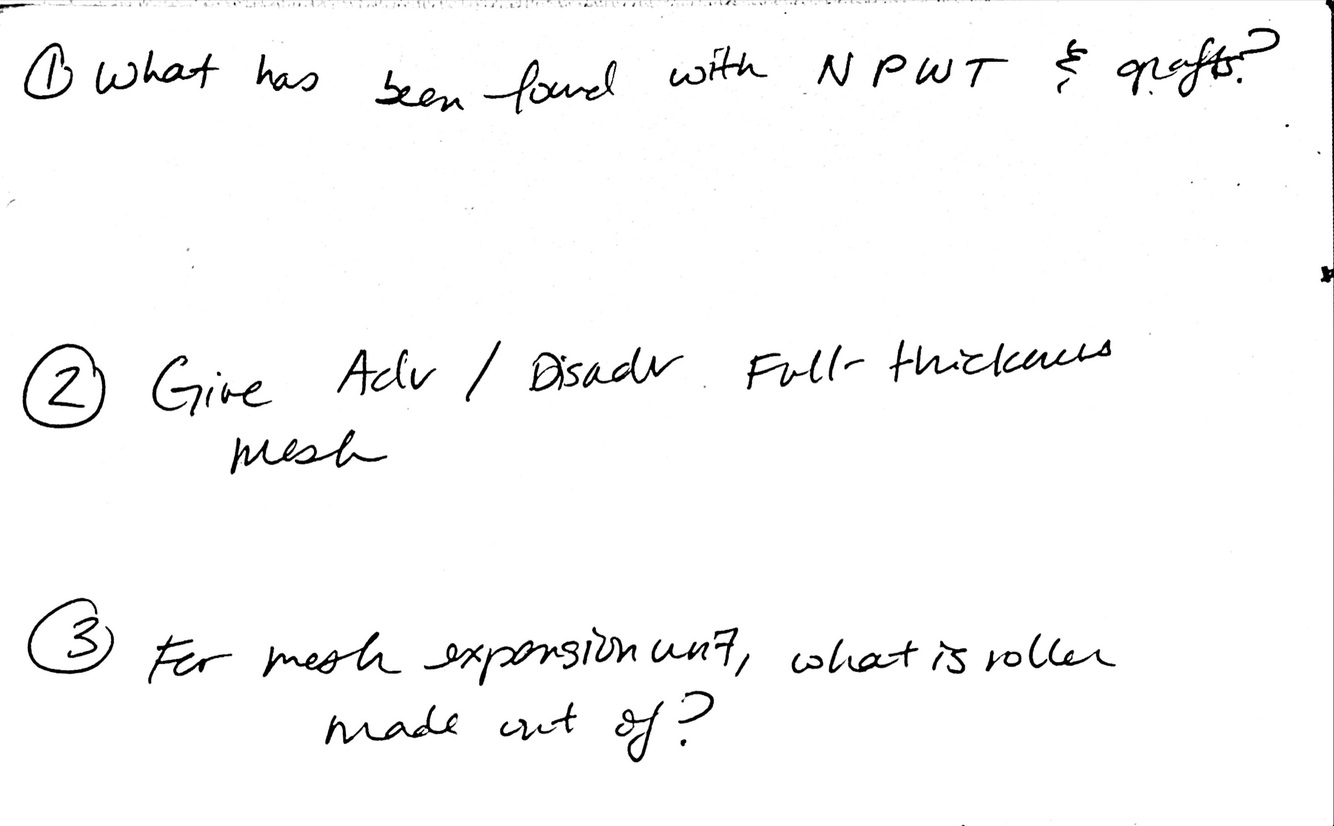 ① What has been found with NPWT & grafts?
② Give Adv / Disadv Full-thickness
mesh
③ For mesh expansion unit, what is roller
made out of?